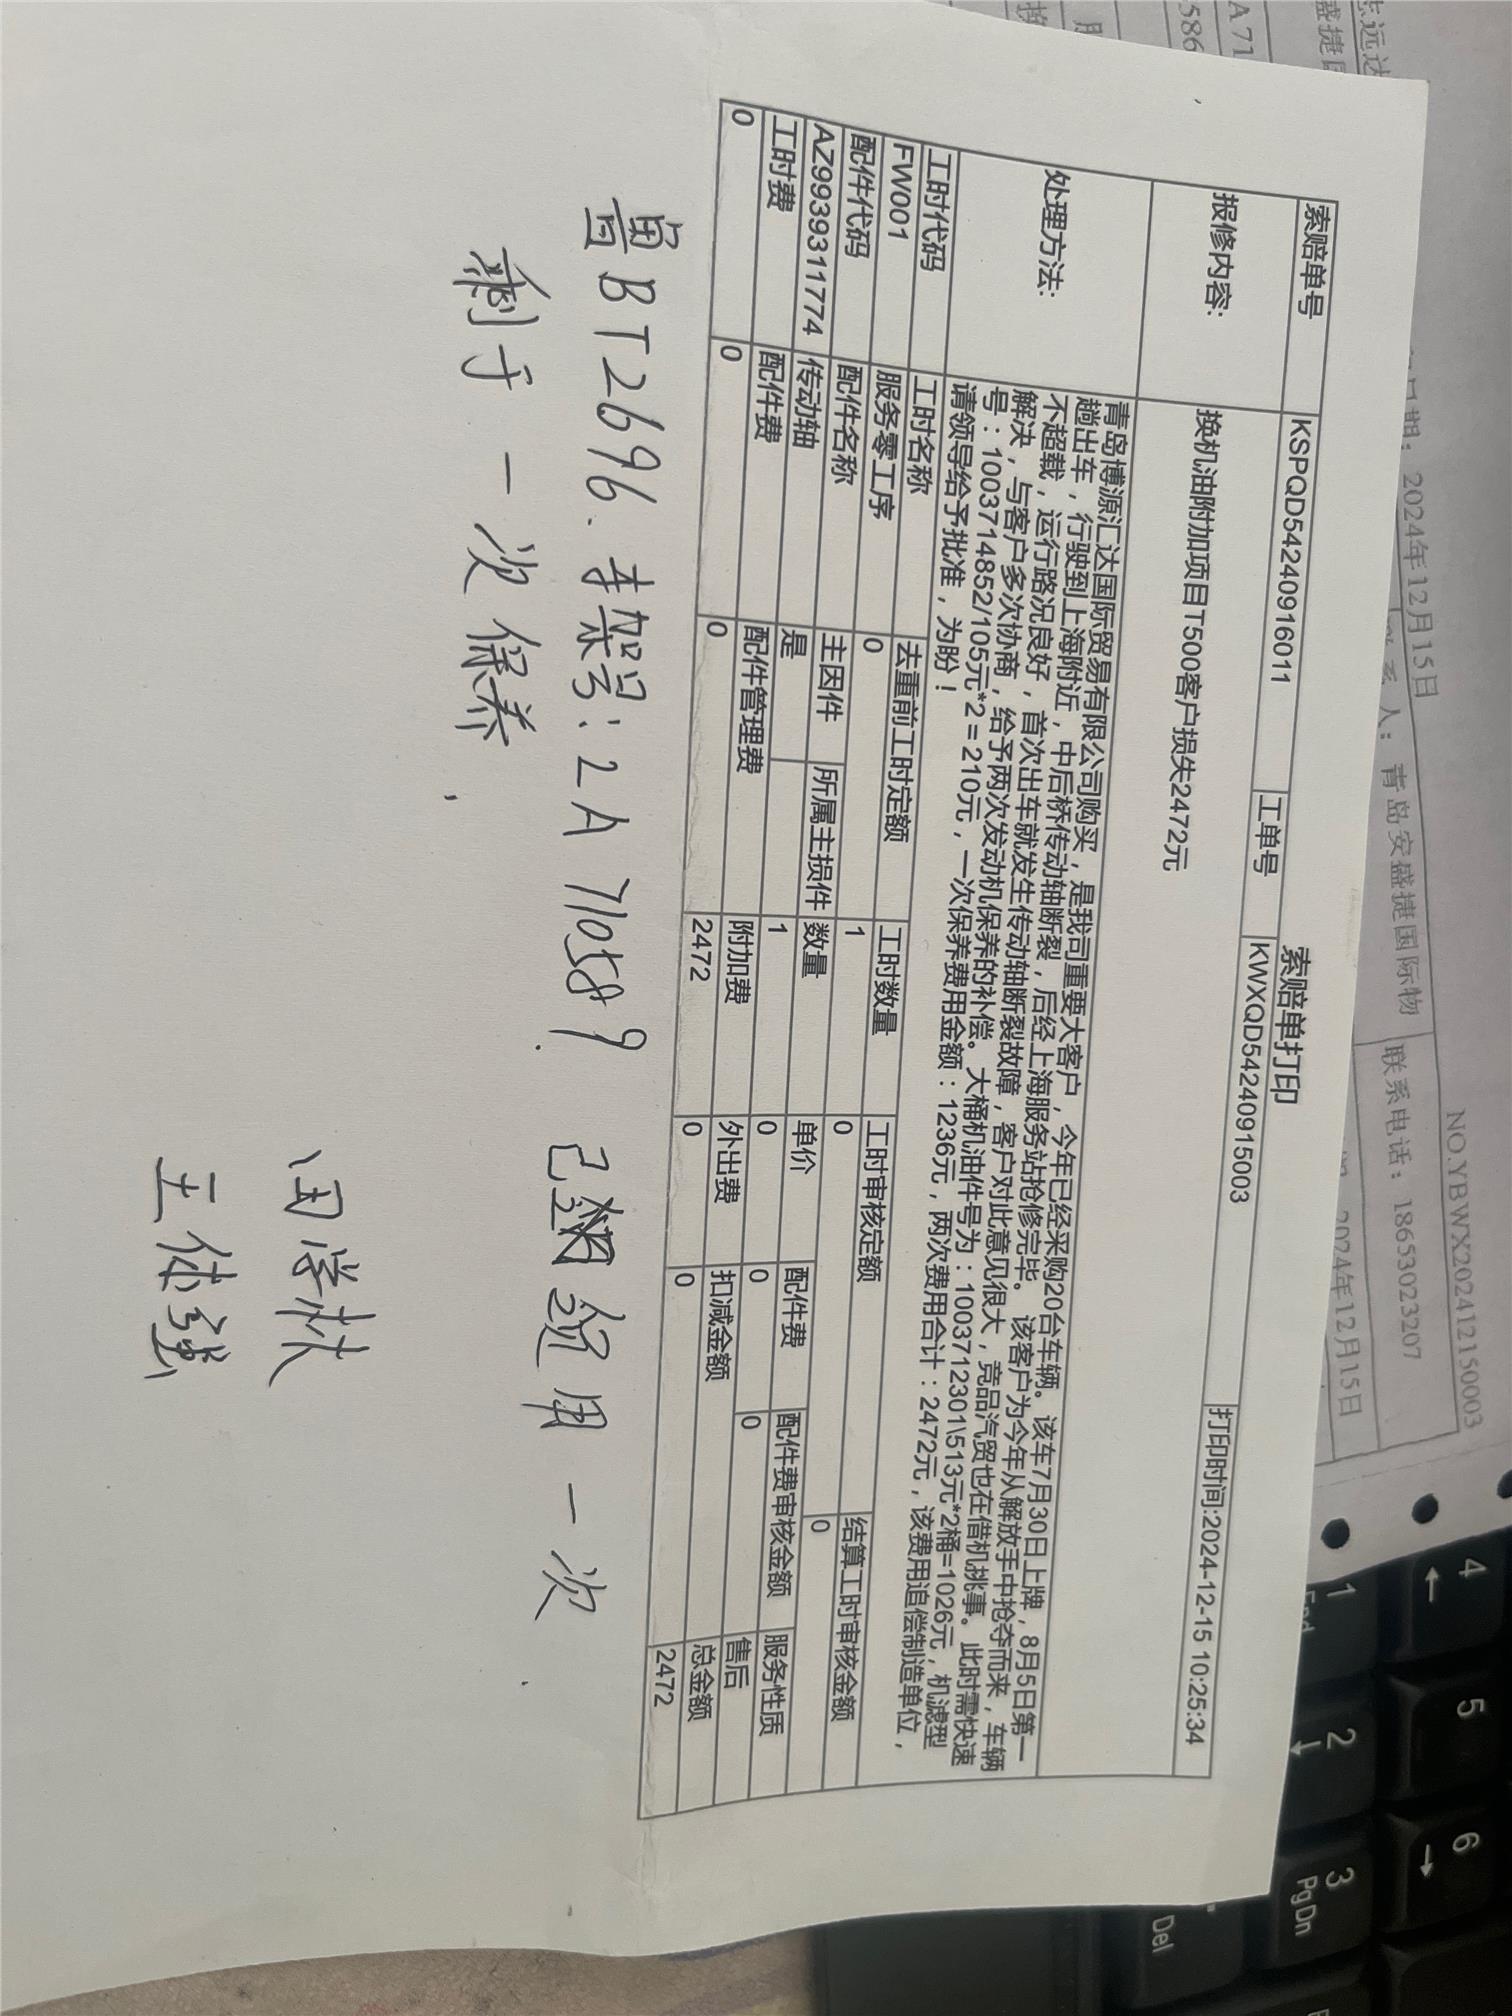 NO.YBWX202412150003
联系电话：18653023207
2024年12月15日
日期：2024年12月15日
系人：青岛安盛捷国际物
索赔单打印
打印时间:2024-12-15 10:25:34
索赔单号 KSPQD54240916011 工单号 KWXQD54240915003
报修内容: 换机油附加项目T500客户损失2472元
处理方法: 青岛博源汇达国际贸易有限公司购买，是我司重要大客户，今年已经采购20台车辆。该车7月30日上牌，8月5日第一
趟出车，行驶到上海附近，中后桥传动轴断裂，后经上海服务站抢修完毕。该客户为今年从解放手中抢夺而来，车辆
不超载，运行路况良好，首次出车就发生传动轴断裂故障，客户对此意见很大，竞品汽贸也在借机挑事。此时需快速
解决，与客户多次协商，给予两次发动机保养的补偿。大桶机油件号为：1003712301\513元*2桶=1026元，机滤型
号：1003714852/105元*2＝210元，一次保养费用金额：1236元，两次费用合计：2472元，该费用追偿制造单位，
请领导给予批准，为盼！
工时代码 工时名称 去重前工时定额 工时数量 工时审核定额 结算工时审核金额
FW001 服务零工序 0 1 0 0
配件代码 配件名称 主因件 所属主损件 数量 单价 配件费 配件费审核金额 服务性质
AZ9939311774 传动轴 是 1 0 0 0 售后
工时费 配件费 配件管理费 附加费 外出费 扣减金额 总金额
0 0 0 2472 0 0 2472
鲁BT2696. 车架号：2A710589. 已使用一次.
剩于一次保养.
王体强
4
5
6
1
End
2
3
PgDn
Del